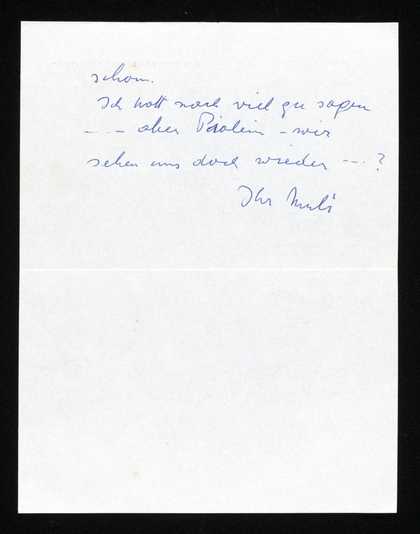 schon.
Ich hätt noch viel zu sagen
– – – aber – wir
sehen uns doch wieder – – . ?
Ihr